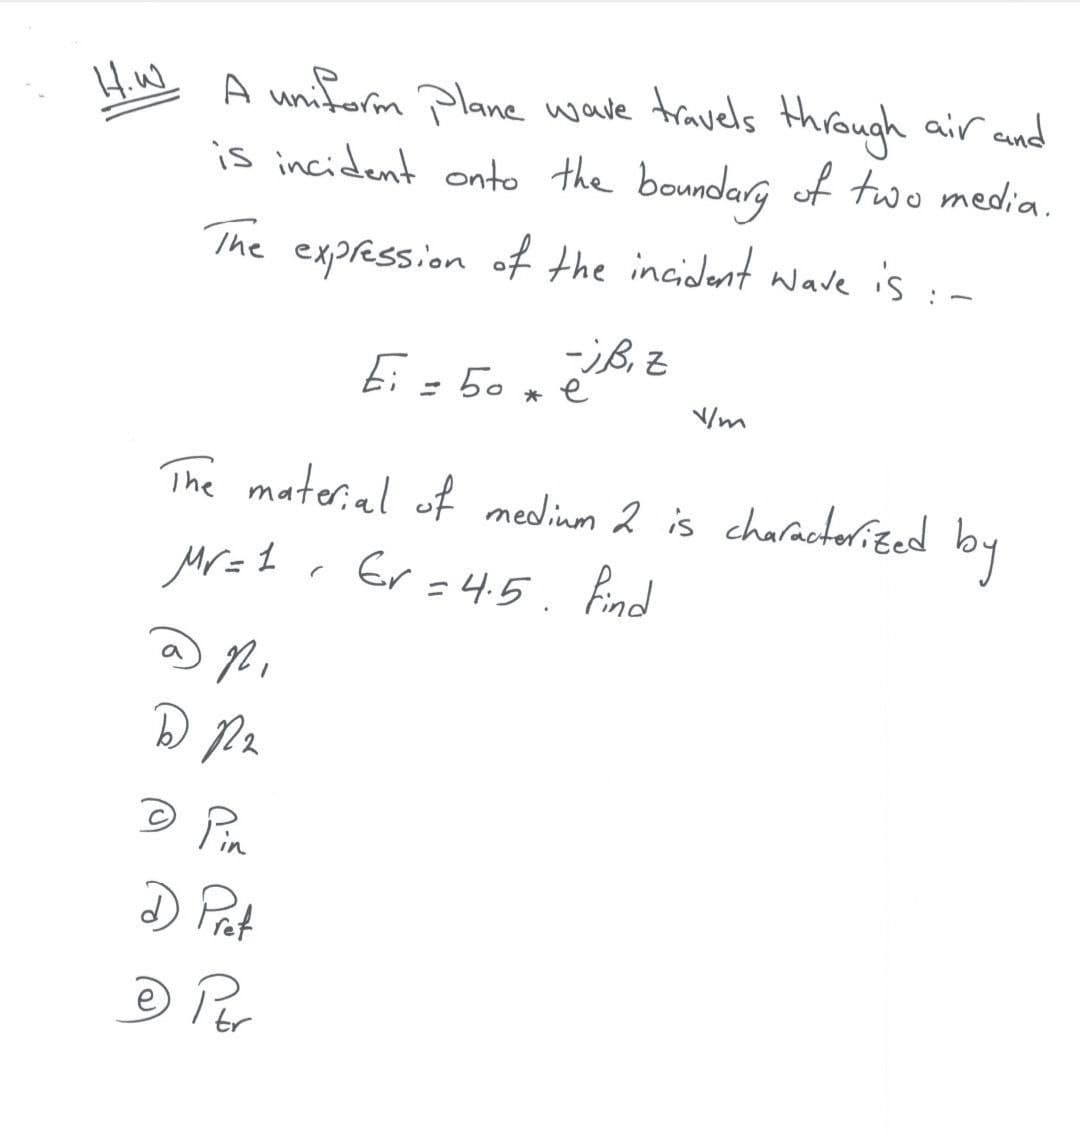 H.W A uniform Plane wave travels through air and
is incident onto the boundary of two media.
The expression of the incident wave is :-
Ei = 50 * e^-jβ₁z V/m
The material of medium 2 is characterized by
μr = 1 , εr = 4.5 . find
a) η₁
b) η₂
c) Pin
d) Pref
e) Ptr